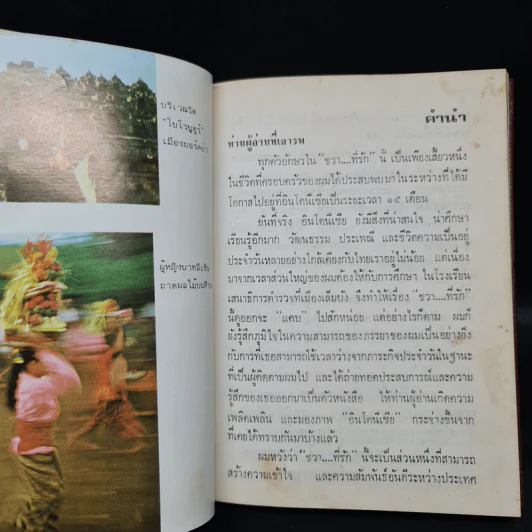 บริเวณวัด
"โบโรบูดูร์"
เมืองยอร์คยา
ผู้หญิงบาหลีเชิญ
ถาดผลไม้บนศีรษะ
คำนำ
ท่านผู้อ่านที่เคารพ
ทุกตัวอักษรใน "ชวา....ที่รัก" นี้ เป็นเพียงเสี้ยวหนึ่ง
ในชีวิตที่ครอบครัวของผมได้ประสบพบมาในระหว่างที่ได้มี
โอกาสไปอยู่ที่อินโดนีเซียเป็นระยะเวลา ๑๕ เดือน
อันที่จริง อินโดนีเซีย ยังมีสิ่งที่น่าสนใจ น่าศึกษา
เรียนรู้อีกมาก วัฒนธรรม ประเพณี และชีวิตความเป็นอยู่
ประจำวันหลายอย่างใกล้เคียงกับไทยเราอยู่ไม่น้อย แต่เนื่อง
มาจากเวลาส่วนใหญ่ของผมต้องให้กับการศึกษา ในโรงเรียน
เสนาธิการตำรวจที่เมืองเล็มบัง จึงทำให้เรื่อง "ชวา....ที่รัก"
นี้ดูออกจะ "แคบ" ไปสักหน่อย แต่อย่างไรก็ตาม ผมก็
ยังรู้สึกภูมิใจในความสามารถของภรรยาของผมเป็นอย่างยิ่ง
กับการที่เธอสามารถใช้เวลาว่างจากภาระกิจประจำวันในฐานะ
ที่เป็นผู้ติดตามผมไป และได้ถ่ายทอดประสบการณ์และความ
รู้สึกของเธอออกมาเป็นตัวหนังสือ ให้ท่านผู้อ่านเกิดความ
เพลิดเพลิน และมองภาพ "อินโดนีเซีย" กระจ่างขึ้นจาก
ที่เคยได้ทราบกันมาบ้างแล้ว
ผมหวังว่า "ชวา....ที่รัก" นี้จะเป็นส่วนหนึ่งที่สามารถ
สร้างความเข้าใจ และความสัมพันธ์อันดีระหว่างประเทศ